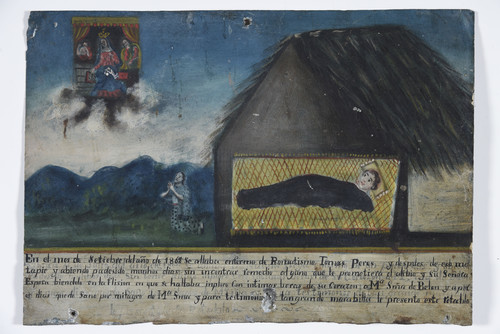 En el mes de Setiembre del año de 1861 Se allaba enfermo de Reumatismo Tomas Peres, y despues de
tapir y abiendo padesido muchos dias sin encontrar remedio alguno que le prometiera el alibio y su Señora
Esposa biendolo en la flixion en que se hallaba inploro con intimas beras de su Corazon; a Mª Srña de Belen, y a pocos
dias quedo Sano por milagro de Mª Srña y para testimonio de tan grande marabilla le presenta este retablo